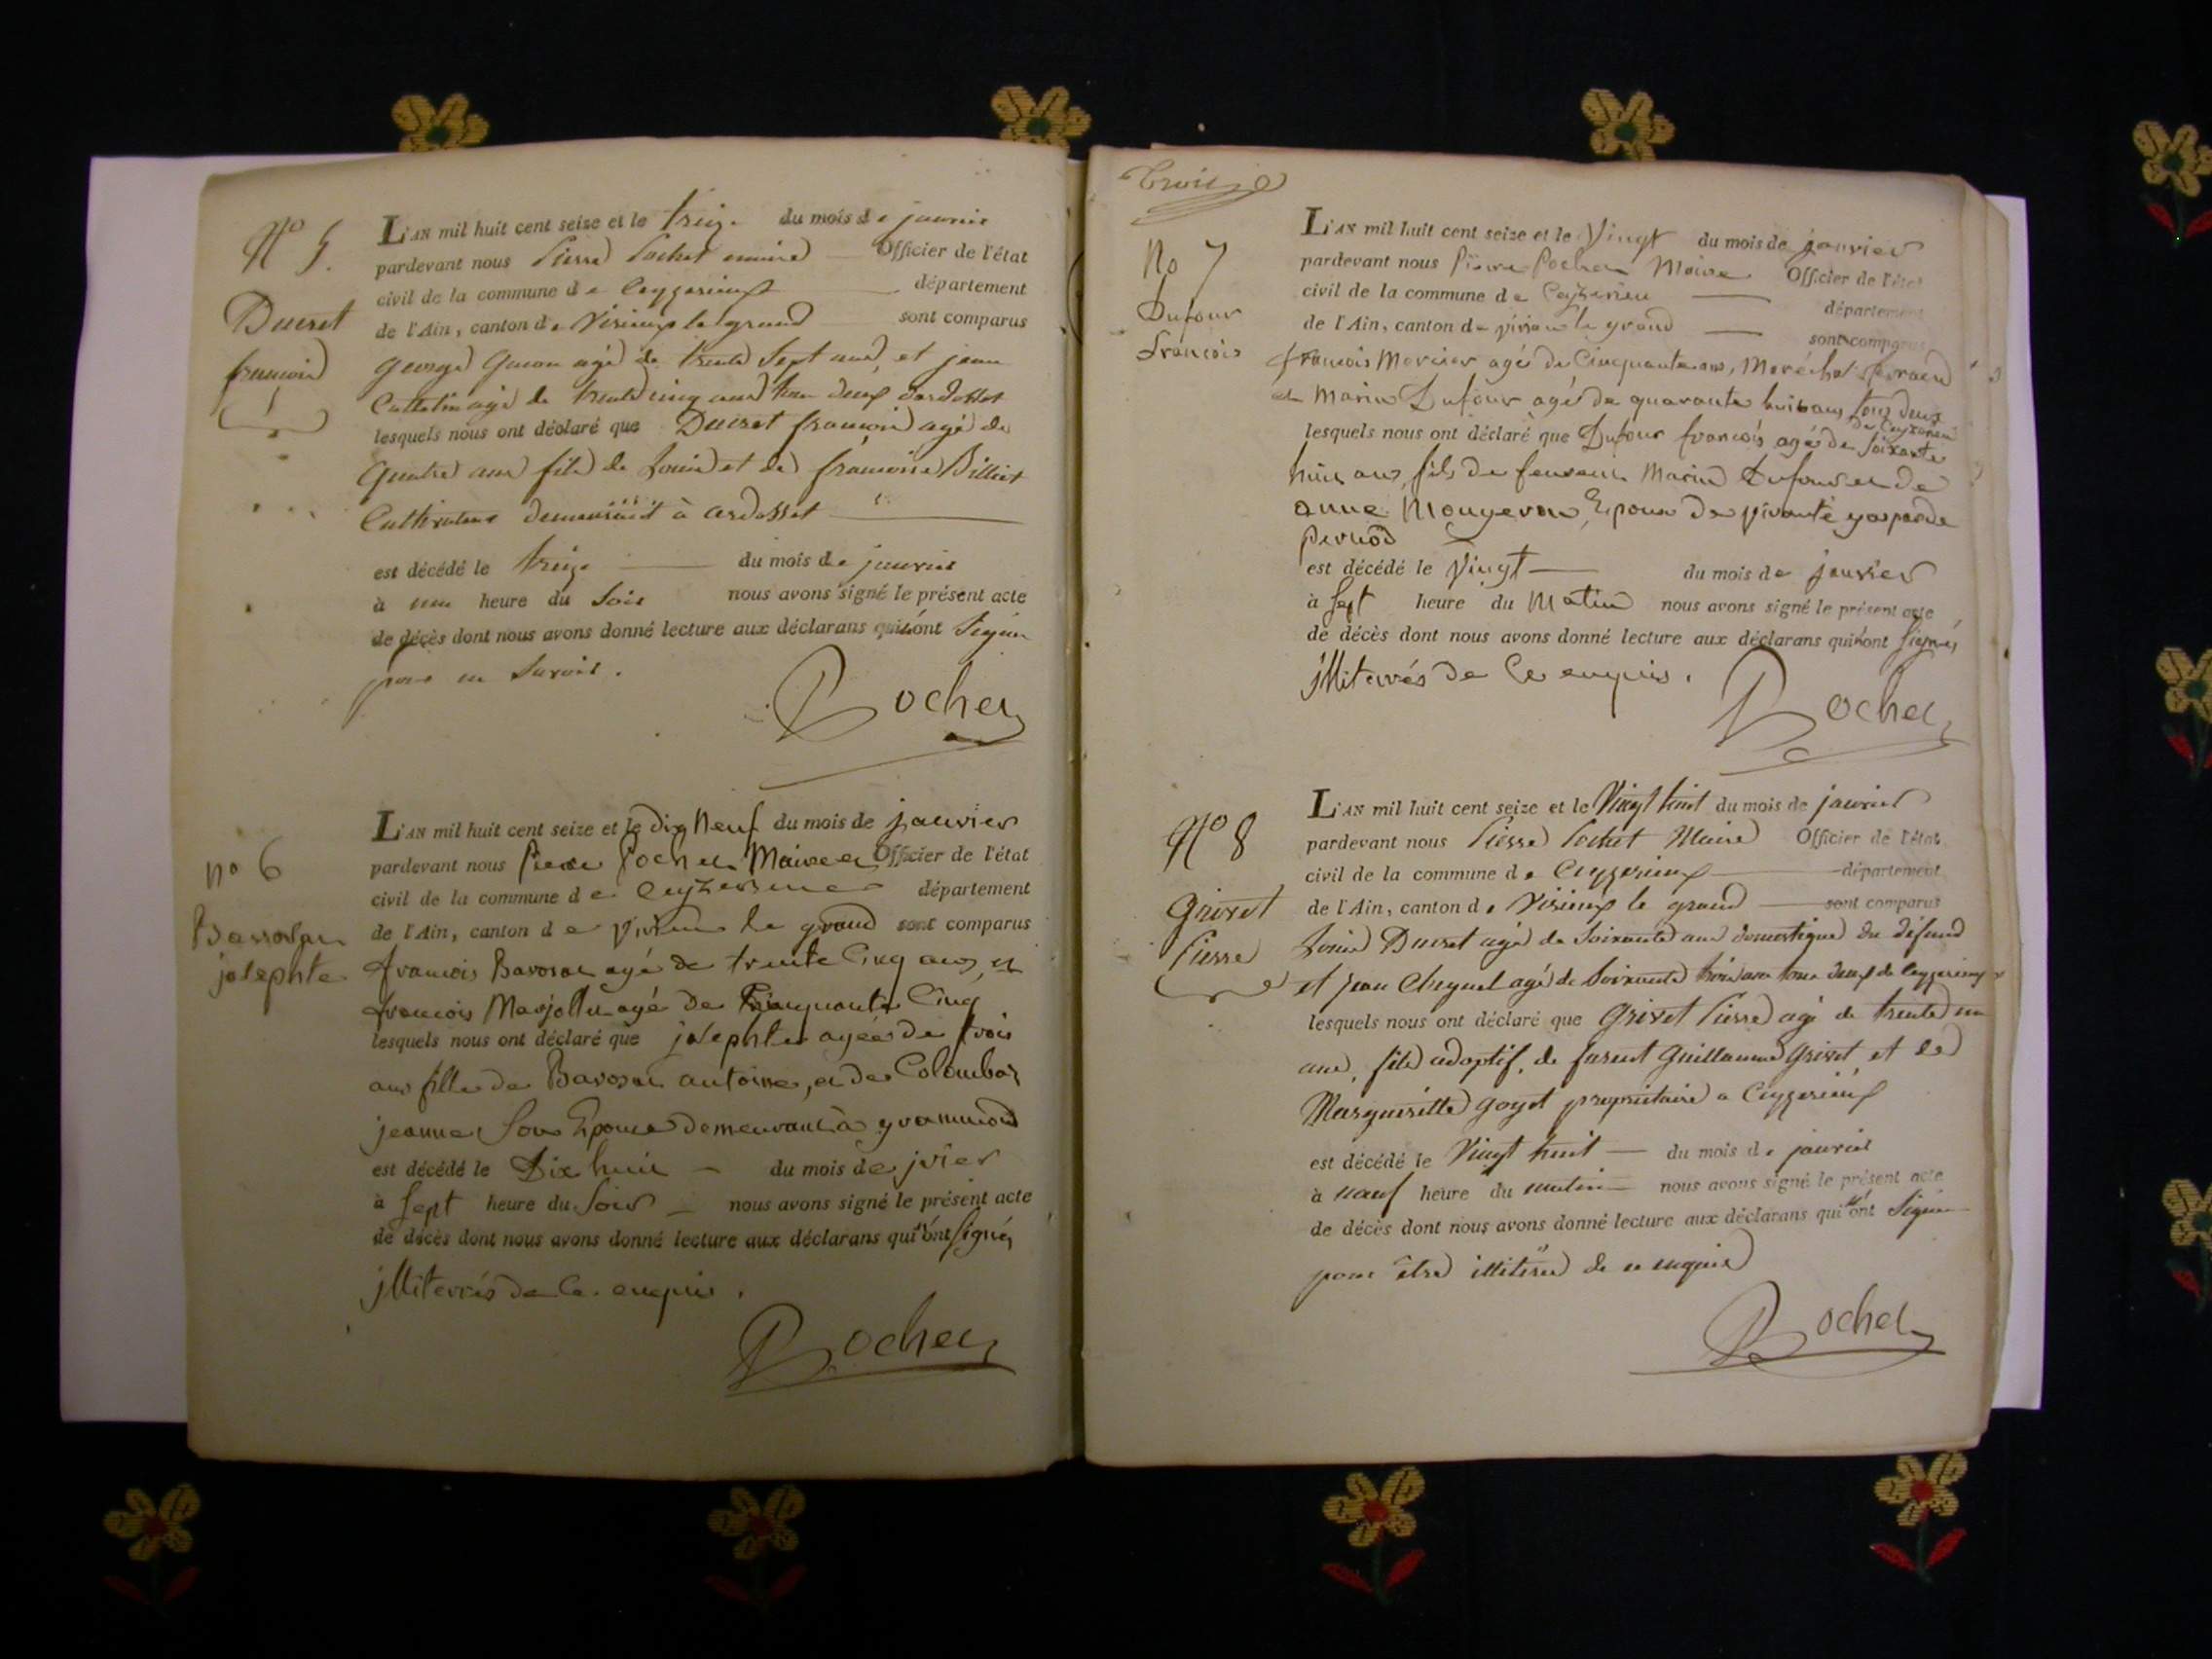 N° 5.
Ducret
françois
L'AN mil huit cent seize et le treize du mois de janvier
pardevant nous Pierre Pochet maire Officier de l'état
civil de la commune de Ceyzerieux département
de l'Ain, canton de Virieux le grand sont comparus
george agé de trente sept ans, et jean
agé de trente cinq ans tous deux d'ardosset
lesquels nous ont déclaré que Ducret françois agé de
quatre ans fils de Louis et de françoise Billiet
Cultivateurs demeurant à ardosset
est décédé le treize du mois de janvier
à une heure du Soir nous avons signé le présent acte
de décès dont nous avons donné lecture aux déclarans qui n'ont Signer
pour ne Savoir.
Pochet
no 6
Bavosat
josephte
L'AN mil huit cent seize et le dix Neuf du mois de janvier
pardevant nous Pierre Pochet Maire et Officier de l'état
civil de la commune de département
de l'Ain, canton de virieu le grand sont comparus
francois Bavosat agé de trente Cinq ans, et
francois Marjollet agé de Cinquante Cinq
lesquels nous ont déclaré que josephte agée de trois
ans fille de Bavosat antoine, et de Colombat
jeanne Son Epouse demeurant à grammond
est décédé le Dix huit du mois de jvier
à Sept heure du Soir nous avons signé le présent acte
de décès dont nous avons donné lecture aux déclarans qui n'ont Signés
jlliterrés de Ce enquis.
Pochet
Trois
No 7
Dufour
francois
L'AN mil huit cent seize et le Vingt du mois de janvier
pardevant nous Pierre Pochet Maire Officier de l'état
civil de la commune de Ceyzerieu département
de l'Ain, canton de virieu le grand sont comparus
francois Mercier agé de Cinquante ans, Maréchal
et Marin Dufour agé de quarante huit ans tous deux
de Ceyzerieu
lesquels nous ont déclaré que Dufour francois agé de Soixante
huit ans, fils de Marin Dufour et de
anne Mougeron, Epoux de vivante gasparde
pernod
est décédé le Vingt du mois de janvier
à Sept heure du Matin nous avons signé le présent acte
de décès dont nous avons donné lecture aux déclarans qui n'ont Signés
jlliterrés de Ce enquis.
Pochet
N° 8
Grivet
Pierre
L'AN mil huit cent seize et le Vingt huit du mois de janvier
pardevant nous Pierre Pochet Maire Officier de l'état
civil de la commune de Ceyzerieux département
de l'Ain, canton de Virieux le grand sont comparus
Louis Ducret agé de Soixante ans domestique du défund
et jean Chequet agé de Soixante trois ans tous deux de Ceyzerieux
lesquels nous ont déclaré que Grivet Pierre agé de trente un
ans, fils adoptif, de Guillaume Grivet et de
Margueritte Goyet propriétaire a Ceyzerieux
est décédé le Vingt huit du mois de janvier
à neuf heure du matin nous avons signé le présent acte
de décès dont nous avons donné lecture aux déclarans qui n'ont Signer
pour être illitéré de ce enquis
Pochet